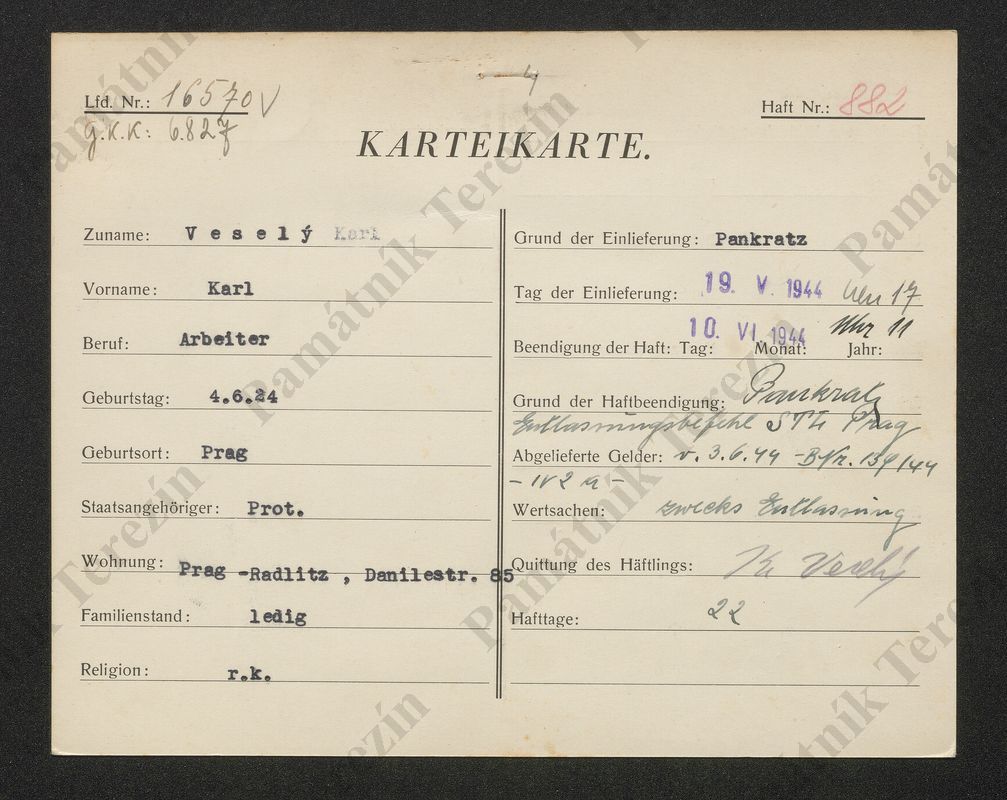 Lfd. Nr.: 16570 V
g.K.K: 6.827
Haft Nr.: 882
KARTEIKARTE.
Zuname: Veselý Karl
Vorname: Karl
Beruf: Arbeiter
Geburtstag: 4.6.24
Geburtsort: Prag
Staatsangehöriger: Prot.
Wohnung: Prag -Radlitz , Danilestr. 85
Familienstand: ledig
Religion: r.k.
Grund der Einlieferung: Pankratz
Tag der Einlieferung: 19. V. 1944 17
Beendigung der Haft: Tag: 10. Monat: VI. 1944 Jahr: Uhr 11
Grund der Haftbeendigung: Pankratz
Entlassungsbefehl STL Prag
Abgelieferte Gelder: v. 3.6.44 - BNr. 139/44
- IV 2 a -
Wertsachen: zwecks Entlassung
Quittung des Häftlings: Veselý
Hafttage: 22
Památník Terezín
Památník Terezín
Památník Terezín
Památník Terezín